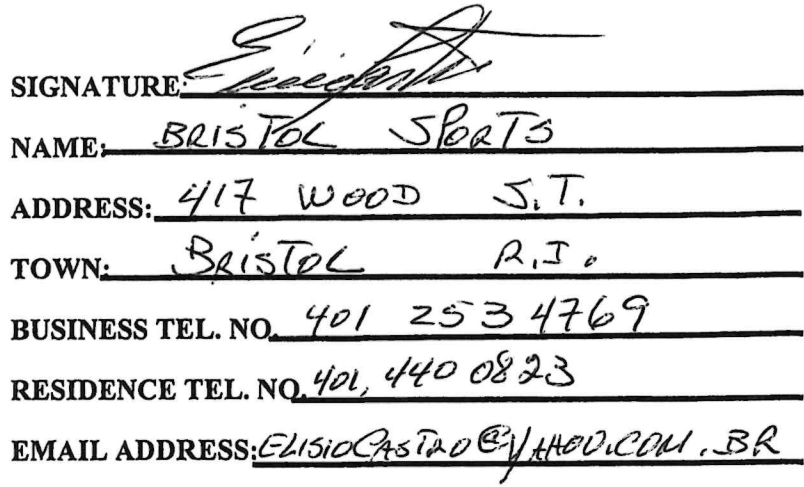 SIGNATURE:
NAME: BRISTOL SPORTS
ADDRESS: 417 WOOD S.T.
TOWN: BRISTOL R.I.
BUSINESS TEL. NO. 401 253 4769
RESIDENCE TEL. NO. 401, 440 0823
EMAIL ADDRESS: ELISIOCASTRO@YAHOO.COM.BR